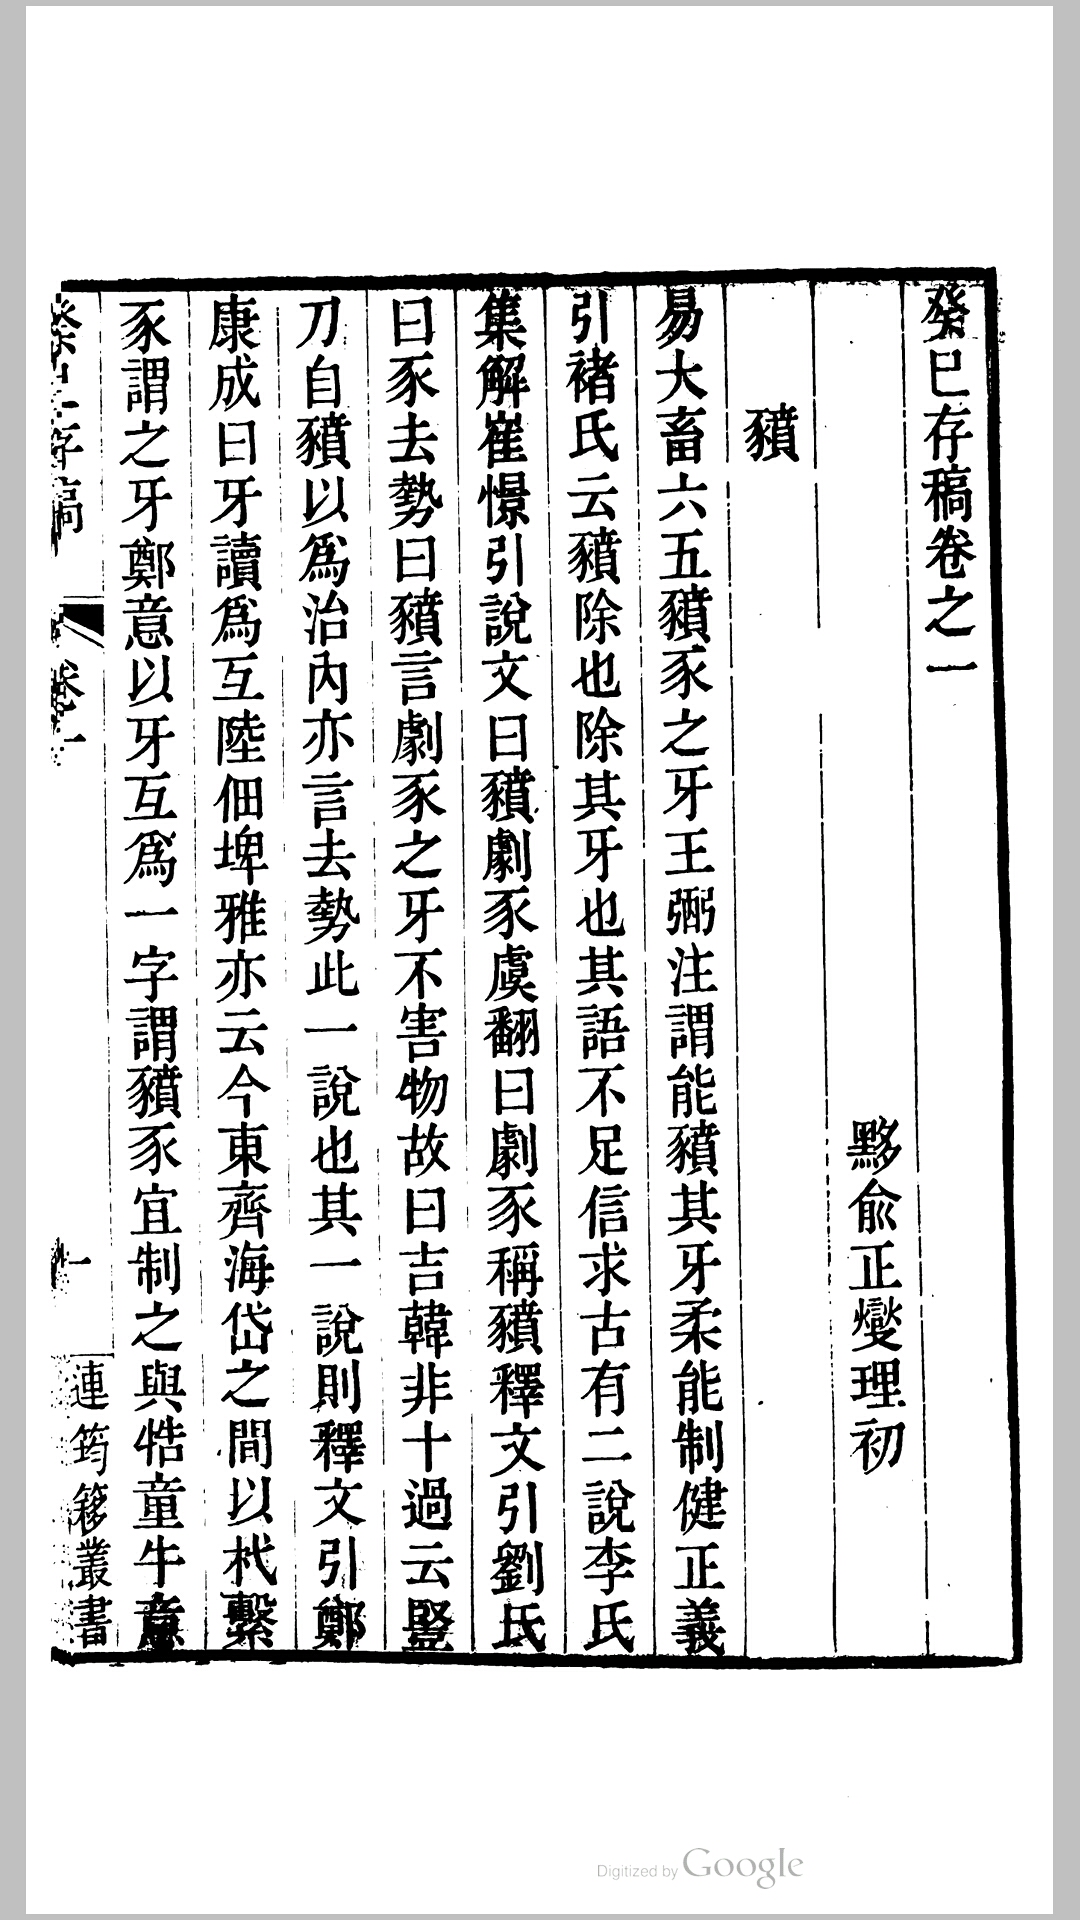 癸巳存稿卷之一
黟俞正燮理初
豶
易大畜六五豶豕之牙王弼注謂能豶其牙柔能制健正義
引褚氏云豶除也除其牙也其語不足信求古有二說李氏
集解崔憬引說文曰豶劇豕虞翻曰劇豕稱豶釋文引劉氏
曰豕去勢曰豶言劇豕之牙不害物故曰吉韓非十過云豎
刀自豶以爲治內亦言去勢此一說也其一說則釋文引鄭
康成曰牙讀爲互陸佃埤雅亦云今東齊海岱之間以杙繫
豕謂之牙鄭意以牙互爲一字謂豶豕宜制之與牿童牛意
癸巳存稿 卷一 一 連筠簃叢書
Digitized by Google